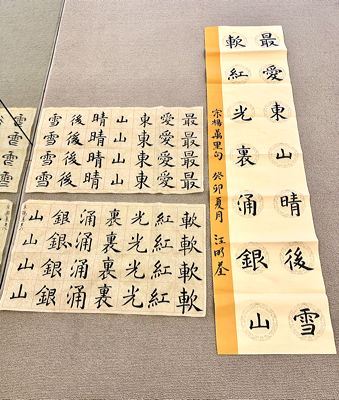 最愛東山晴後雪
軟紅光裏涌銀山
宋楊萬里句 癸卯夏月 汪
最最最最
愛愛愛愛
東東東東
山山山山
晴晴晴晴
後後後後
雪雪雪雪
軟軟軟軟
紅紅紅紅
光光光光
裏裏裏裏
涌涌涌涌
銀銀銀銀
山山山山